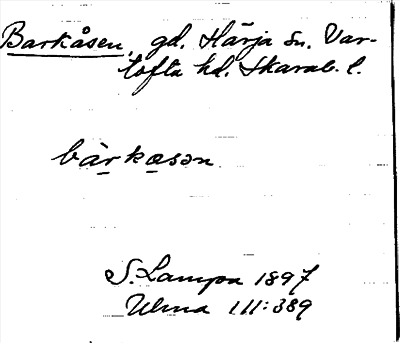 Barkåsen, gd. Härja sn. Var-
tofta hd. Skarab. l.
bàrkåsən
S. Lampa 1897
Ulma 111:389